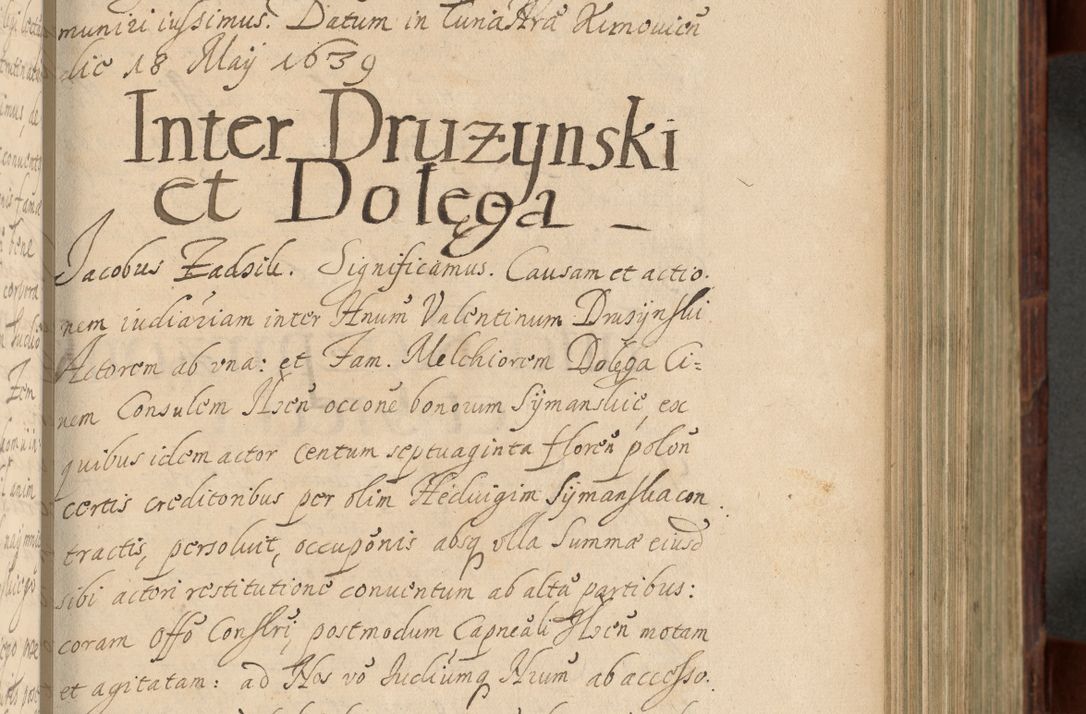 muniri iussimus. Datum in Curia Nra Kimovien
die 18 Maij 1639
Inter Druzynski
et Dolęga
Jacobus Zadzik. Significamus. Causam et actio-
nem iudiariam inter Hnum Valentinum Druzynski
Actorem ab vna: et Fam. Melchiorem Dolęga Ci=
nem Consulem occone bonorum Symanskie, ex
quibus idem actor centum septuaginta floren polon
certis creditoribus per olim Hedvigim Symanska con
tractis, persoluit, occuponis absq vlla Summæ eiusd
sibi actori restitutione conuentum ab alta partibus:
coram Offo Conslri postmodum Capneali motam
et agitatam: ad Nos vo Iudiumq Nrum ab accesso.